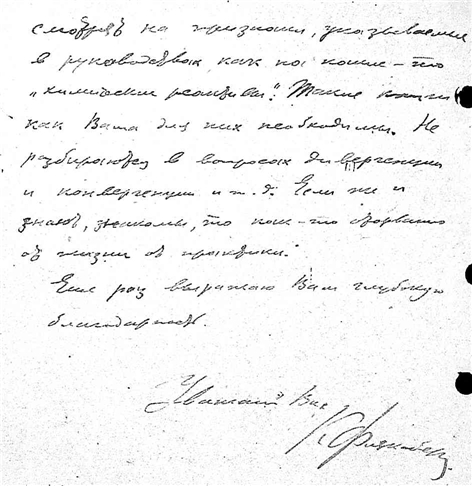 смотрят на признаки, указываемые
в руководствах как на какие-то
„химические реактивы“. Такие книги
как Ваша для них необходимы. Не
разбираются в вопросах дивергенции
и конвергенции и т.д. Если же и
знают, знакомы, то как-то оторвано
от жизни от практики.
Еще раз выражаю Вам глубокую
благодарность.
Уважающий Вас